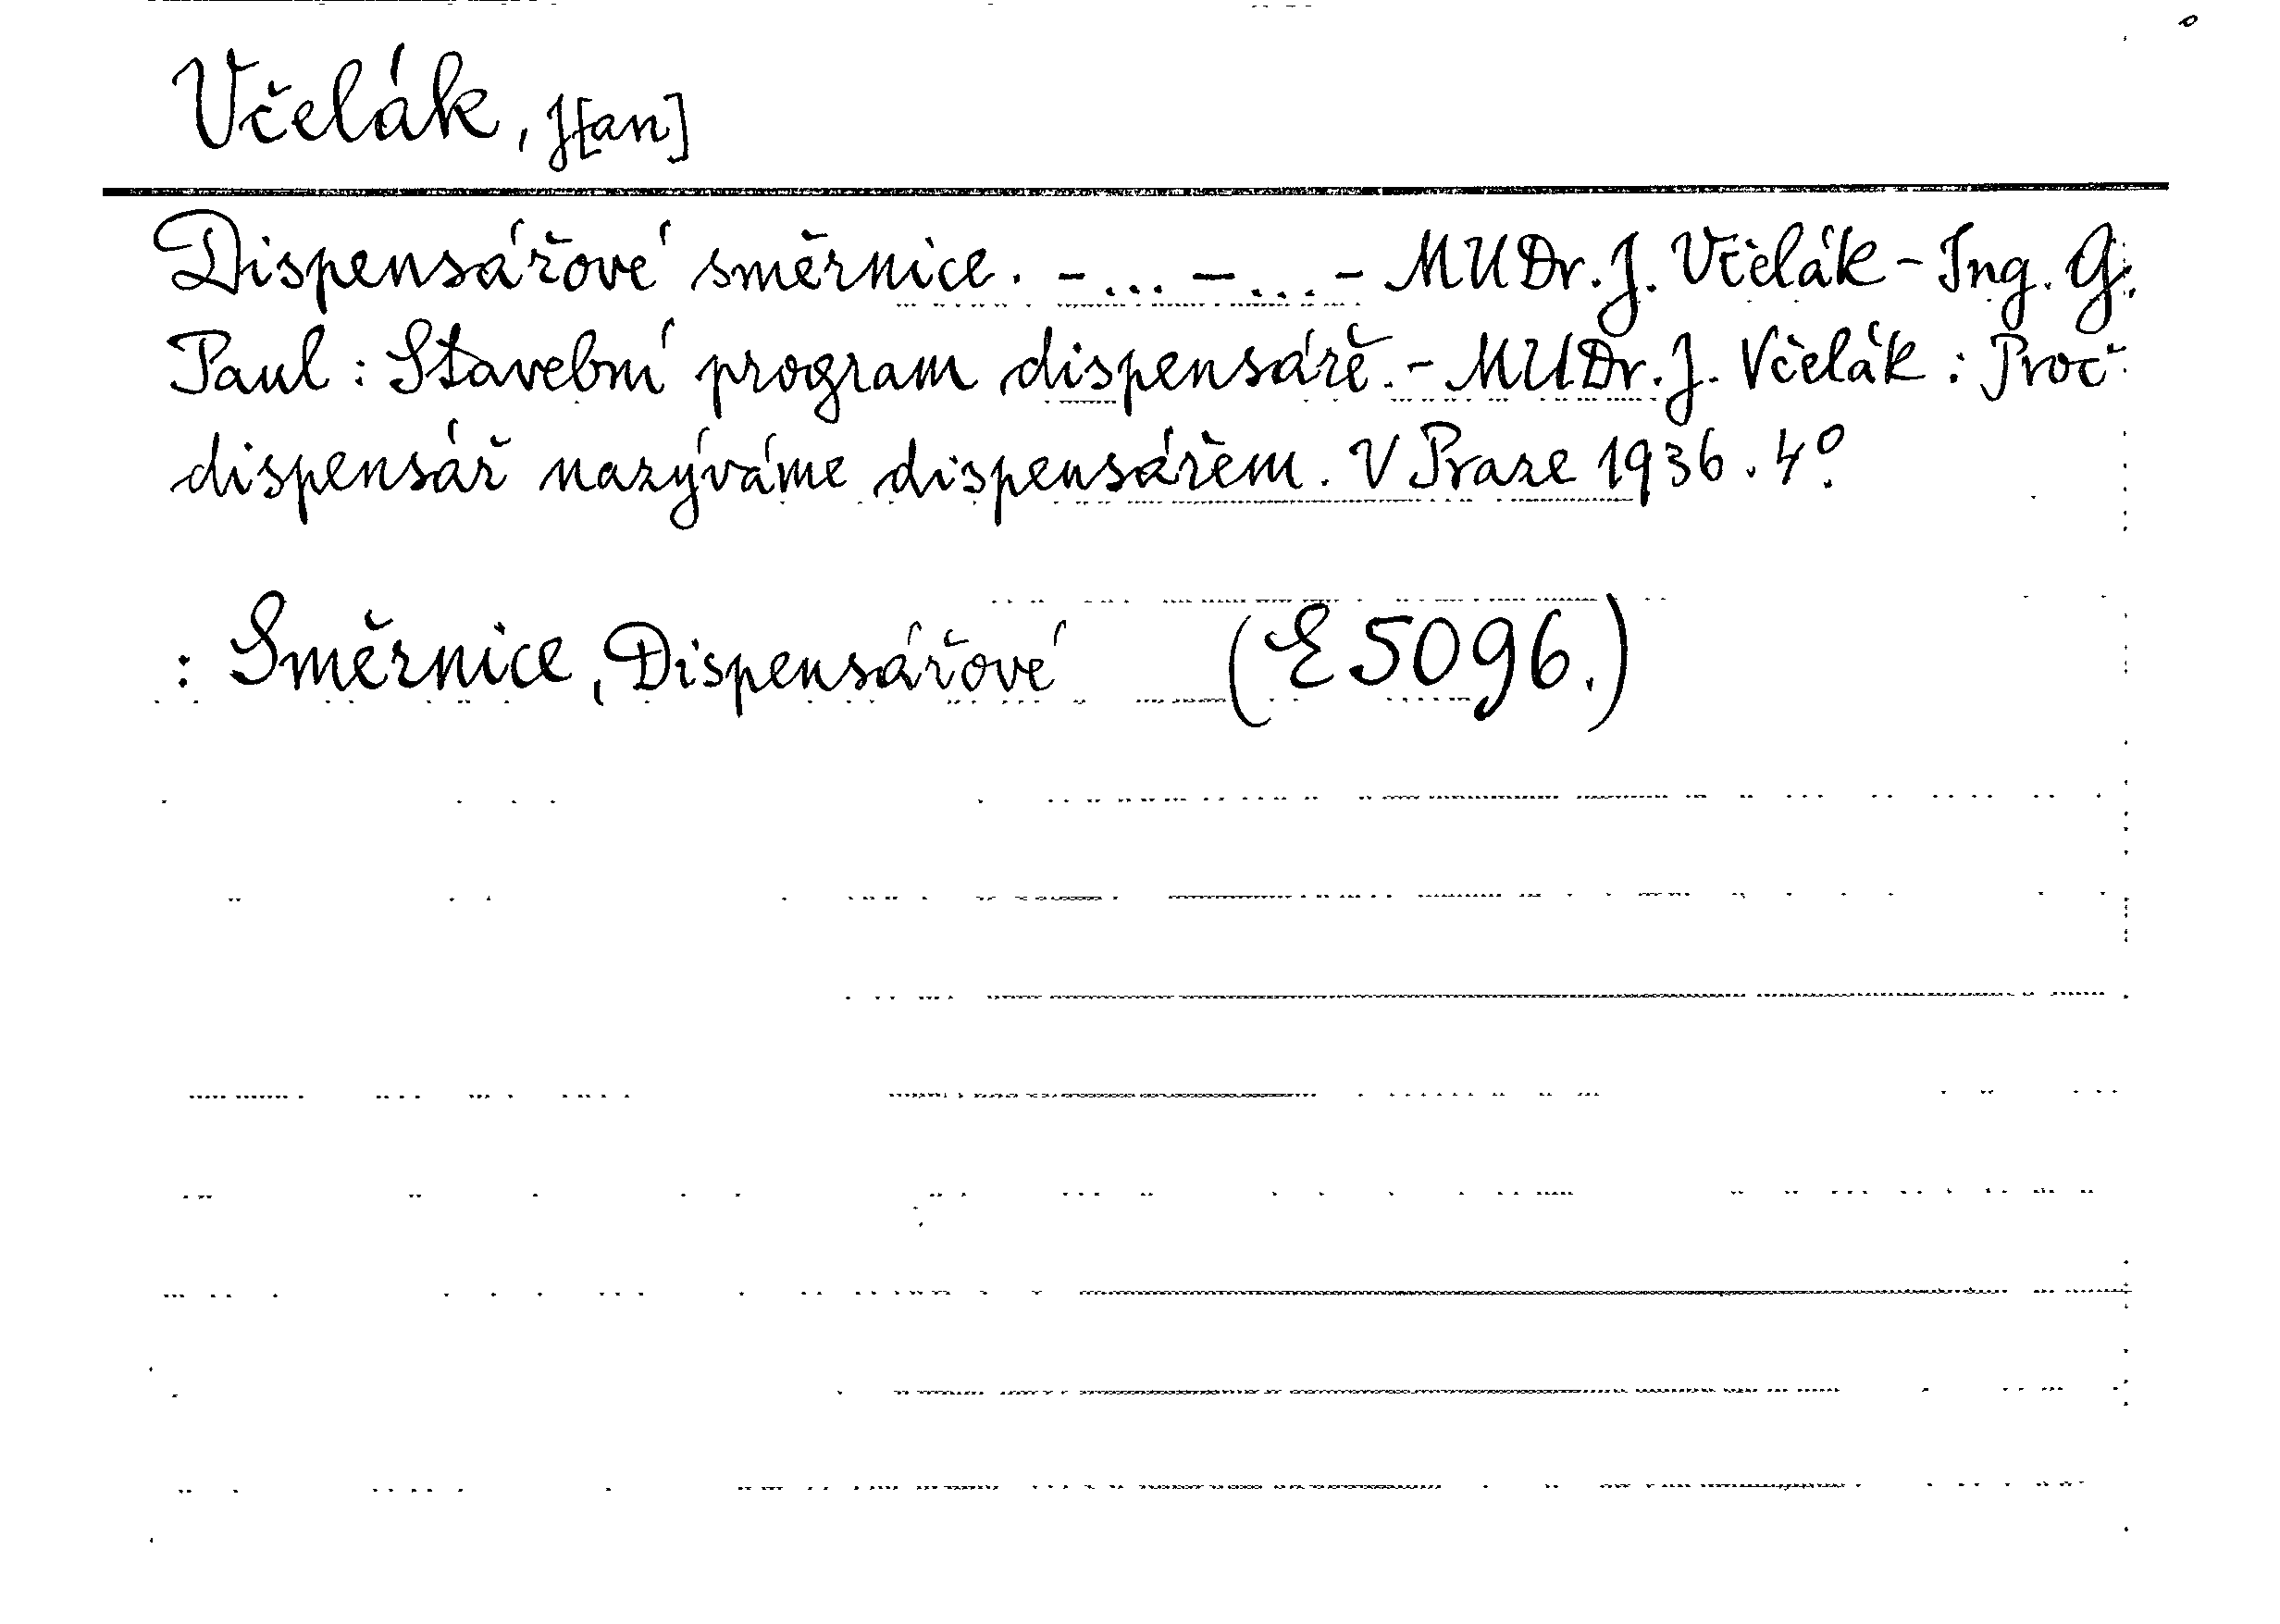 Včelák, J[an]
Dispensářové směrnice. - ... - ... - MUDr. J. Včelák - Ing. G.
Paul : Stavební program dispensáře. - MUDr. J. Včelák : Proč
dispensář nazýváme dispensářem. V Praze 1936. 4°.
: Směrnice, Dispensářové (E 5096.)